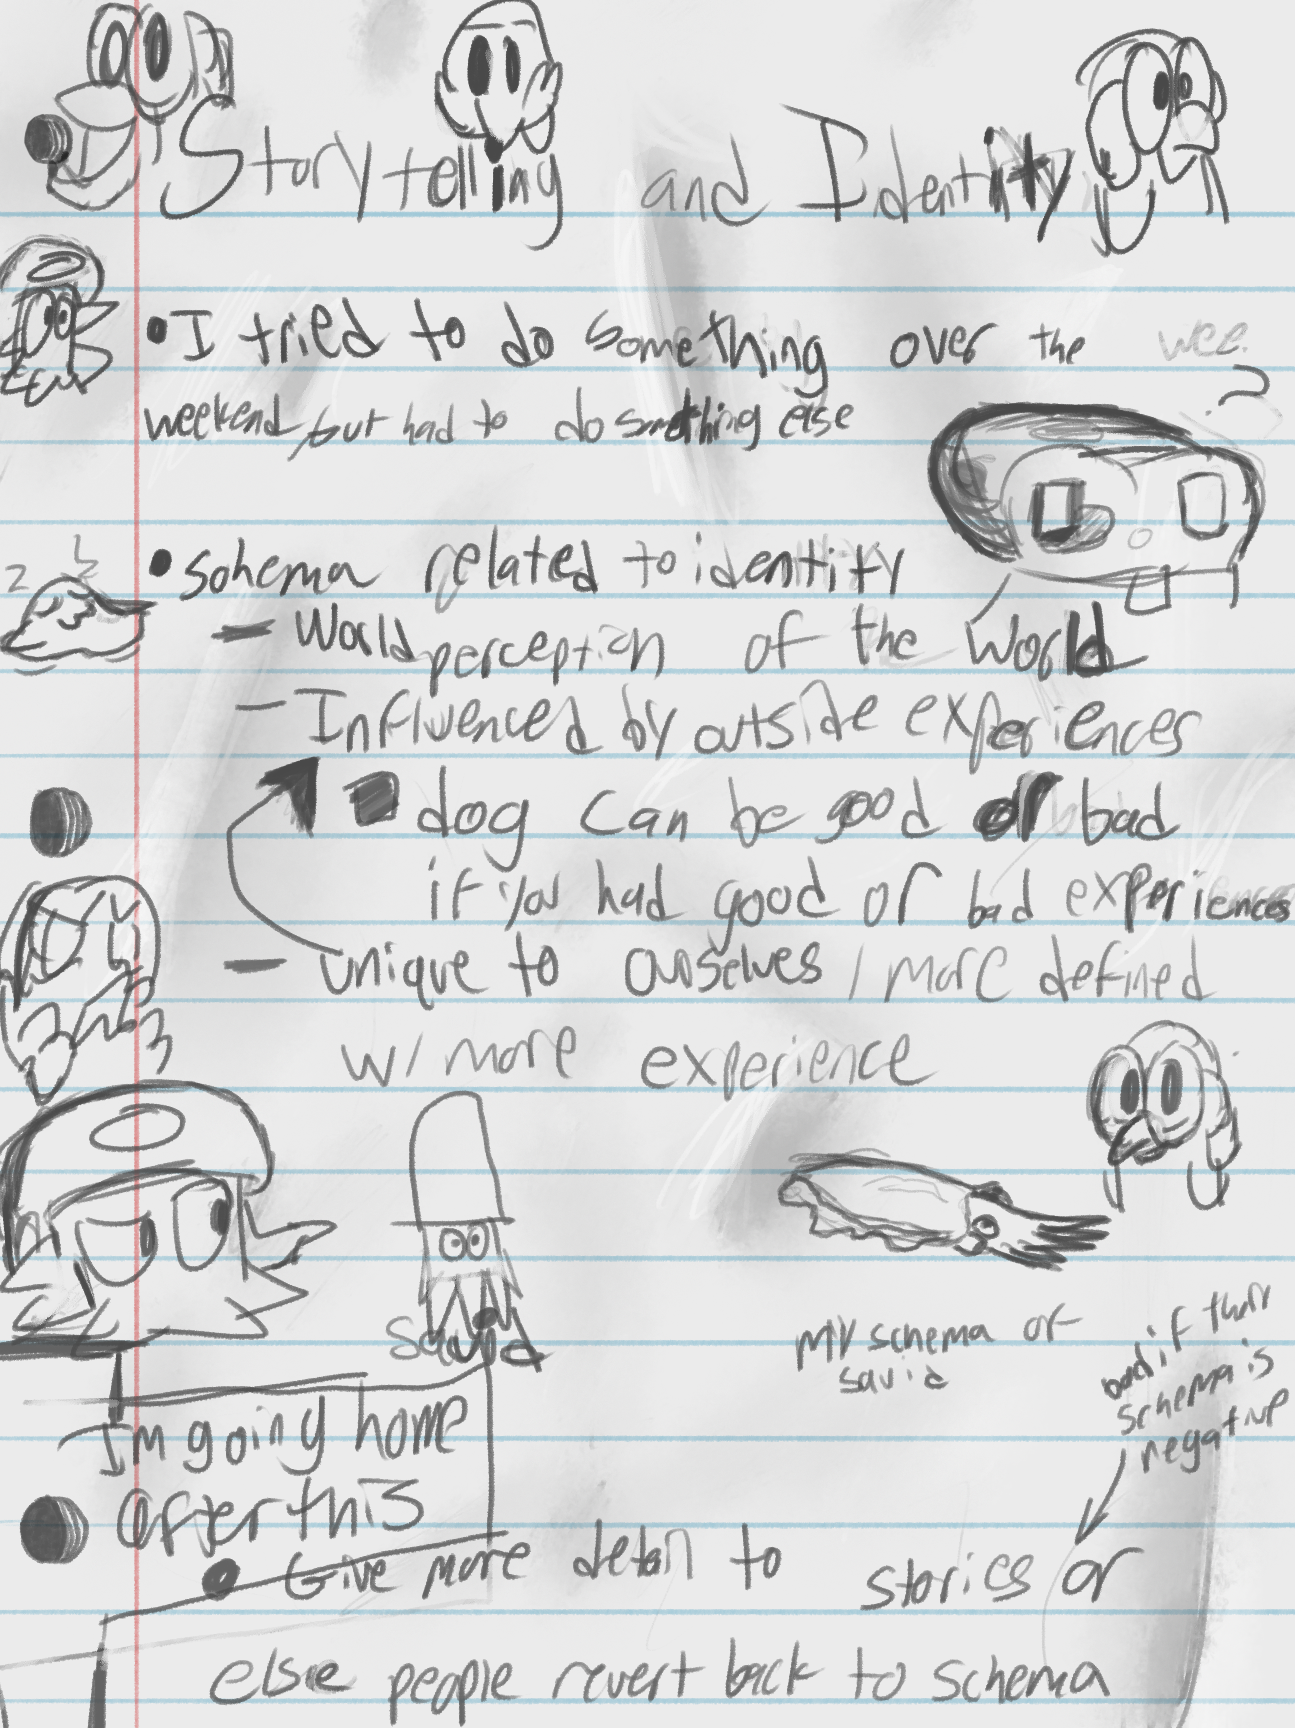 Storytelling and Identity
• I tried to do something over the wee
weekend, but had to do something else
?
z z
• schema related to identity
- World perception of the World
- Influenced by outside experiences
dog can be good or bad
if you had good or bad experiences
- unique to ourselves / more defined
w/ more experience
Squid
my schema of
squid
bad if their
schema is
negative
I'm going home
after this
• Give more detail to stories or
else people revert back to schema